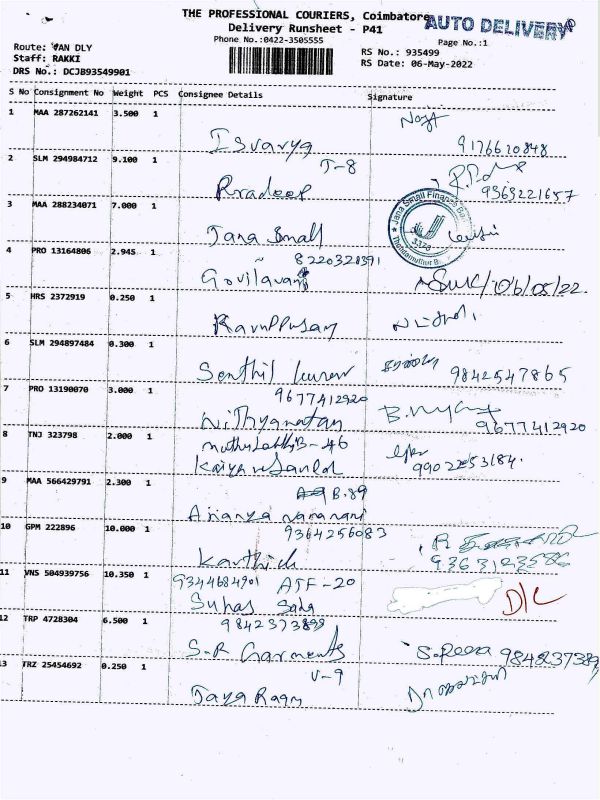 THE PROFESSIONAL COURIERS, Coimbatore
AUTO DELIVERY
Delivery Runsheet - P41
Phone No.:0422-3505555
Page No.:1
Route: VAN DLY
RS No.: 935499
Staff: RAKKI
RS Date: 06-May-2022
DRS No.: DCJB93549901
S No Consignment No Weight PCS Consignee Details Signature
1 MAA 287262141 3.500 1
Isvarya 9176610848
2 SLM 294984712 9.100 1 T-8
Pradeep 9363221657
3 MAA 288234071 7.000 1
Jana Small
Jana Small Finance Bank
3328
4 PRO 13164806 2.945 1 8220320391
06/05/22
5 HRS 2372919 0.250 1
Karuppusamy
6 SLM 294897484 0.300 1
Senthil kumar 9842547865
7 PRO 13190070 3.000 1 9677412920
Nithyanatan 9677412920
8 TNJ 323798 2.000 1 B-46
9902253184.
9 MAA 566429791 2.300 1 B.89
Ananya
10 GPM 222896 10.000 1 9364256083
Karthick 9363123586
11 VNS 504939756 10.350 1 9344684901 ATF-20
Suhas D/L
12 TRP 4728304 6.500 1 9842373899
S.R Garments
13 TRZ 25454692 0.250 1 V-9
Jaya